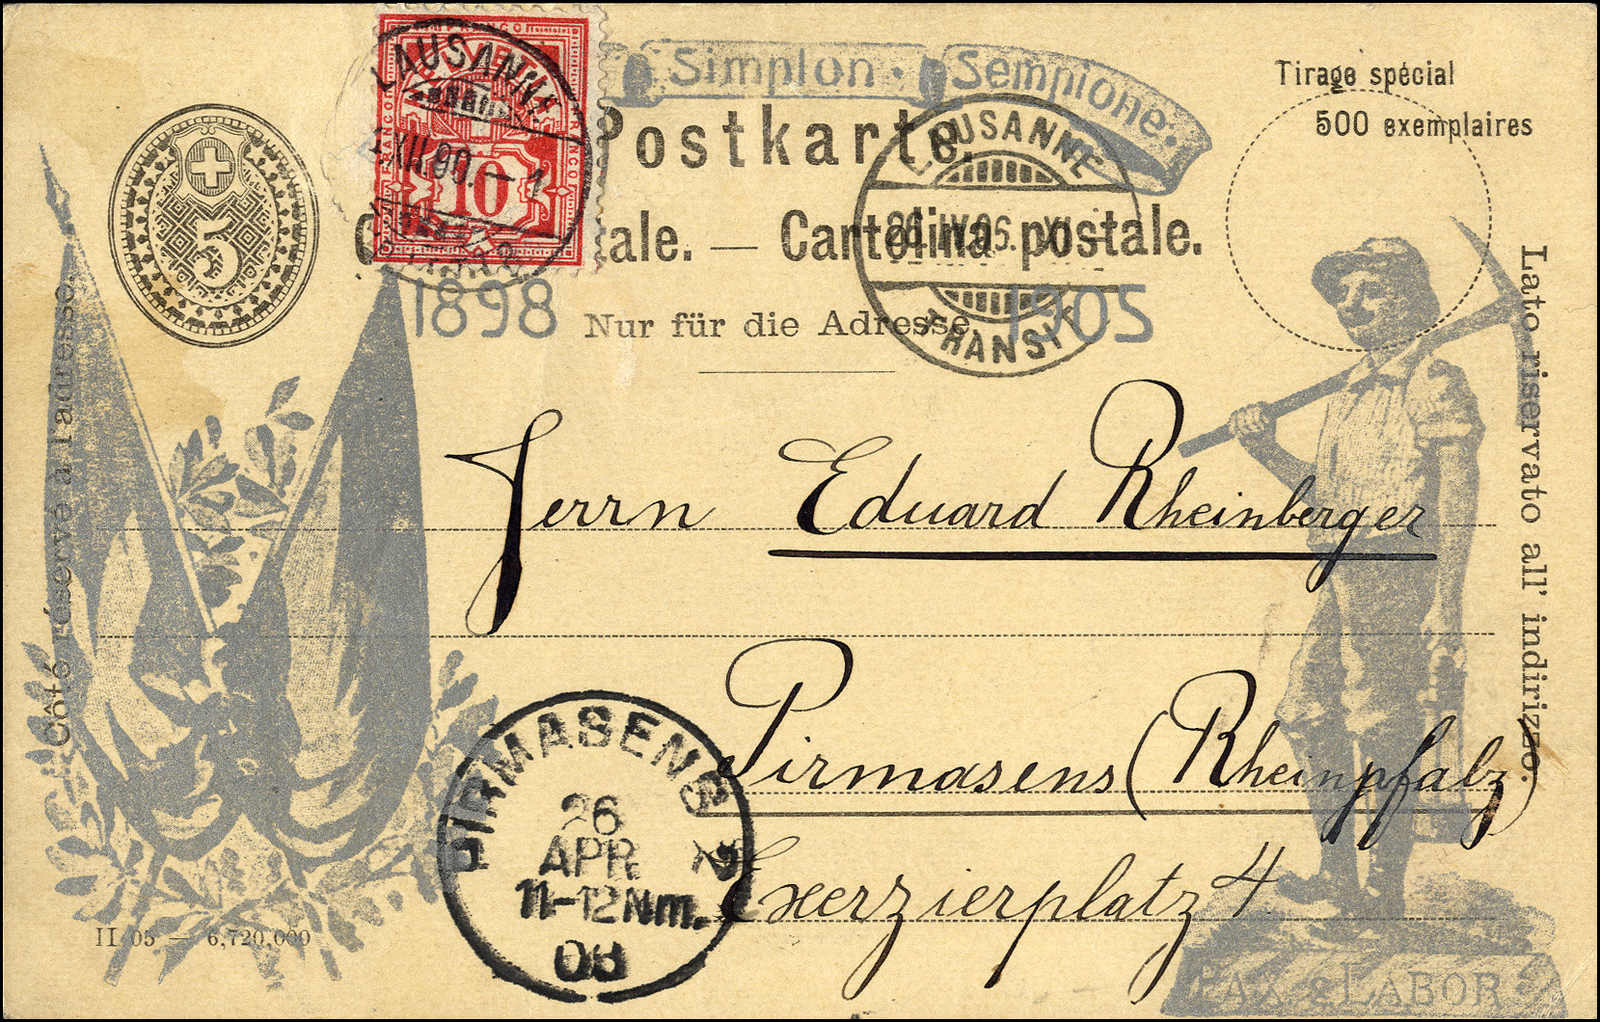 Simplon · Sempione ·
Tirage spécial
500 exemplaires
Postkarte.
tale. — Cartolina postale.
1898 1905
Nur für die Adresse.
Côté réservé à l'adresse.
Lato riservato all' indirizzo.
FRANCO
HELVETIA
10
LAUSANNE
XII.90.—1
5
LAUSANNE
26.IV.06. XI–
TRANSIT
Herrn Eduard Rheinberger
Pirmasens (Rheinpfalz)
Exerzierplatz 4.
PIRMASENS 2
26
APR
11-12Nm.
06
II 05 — 6,720,000
PAX & LABOR